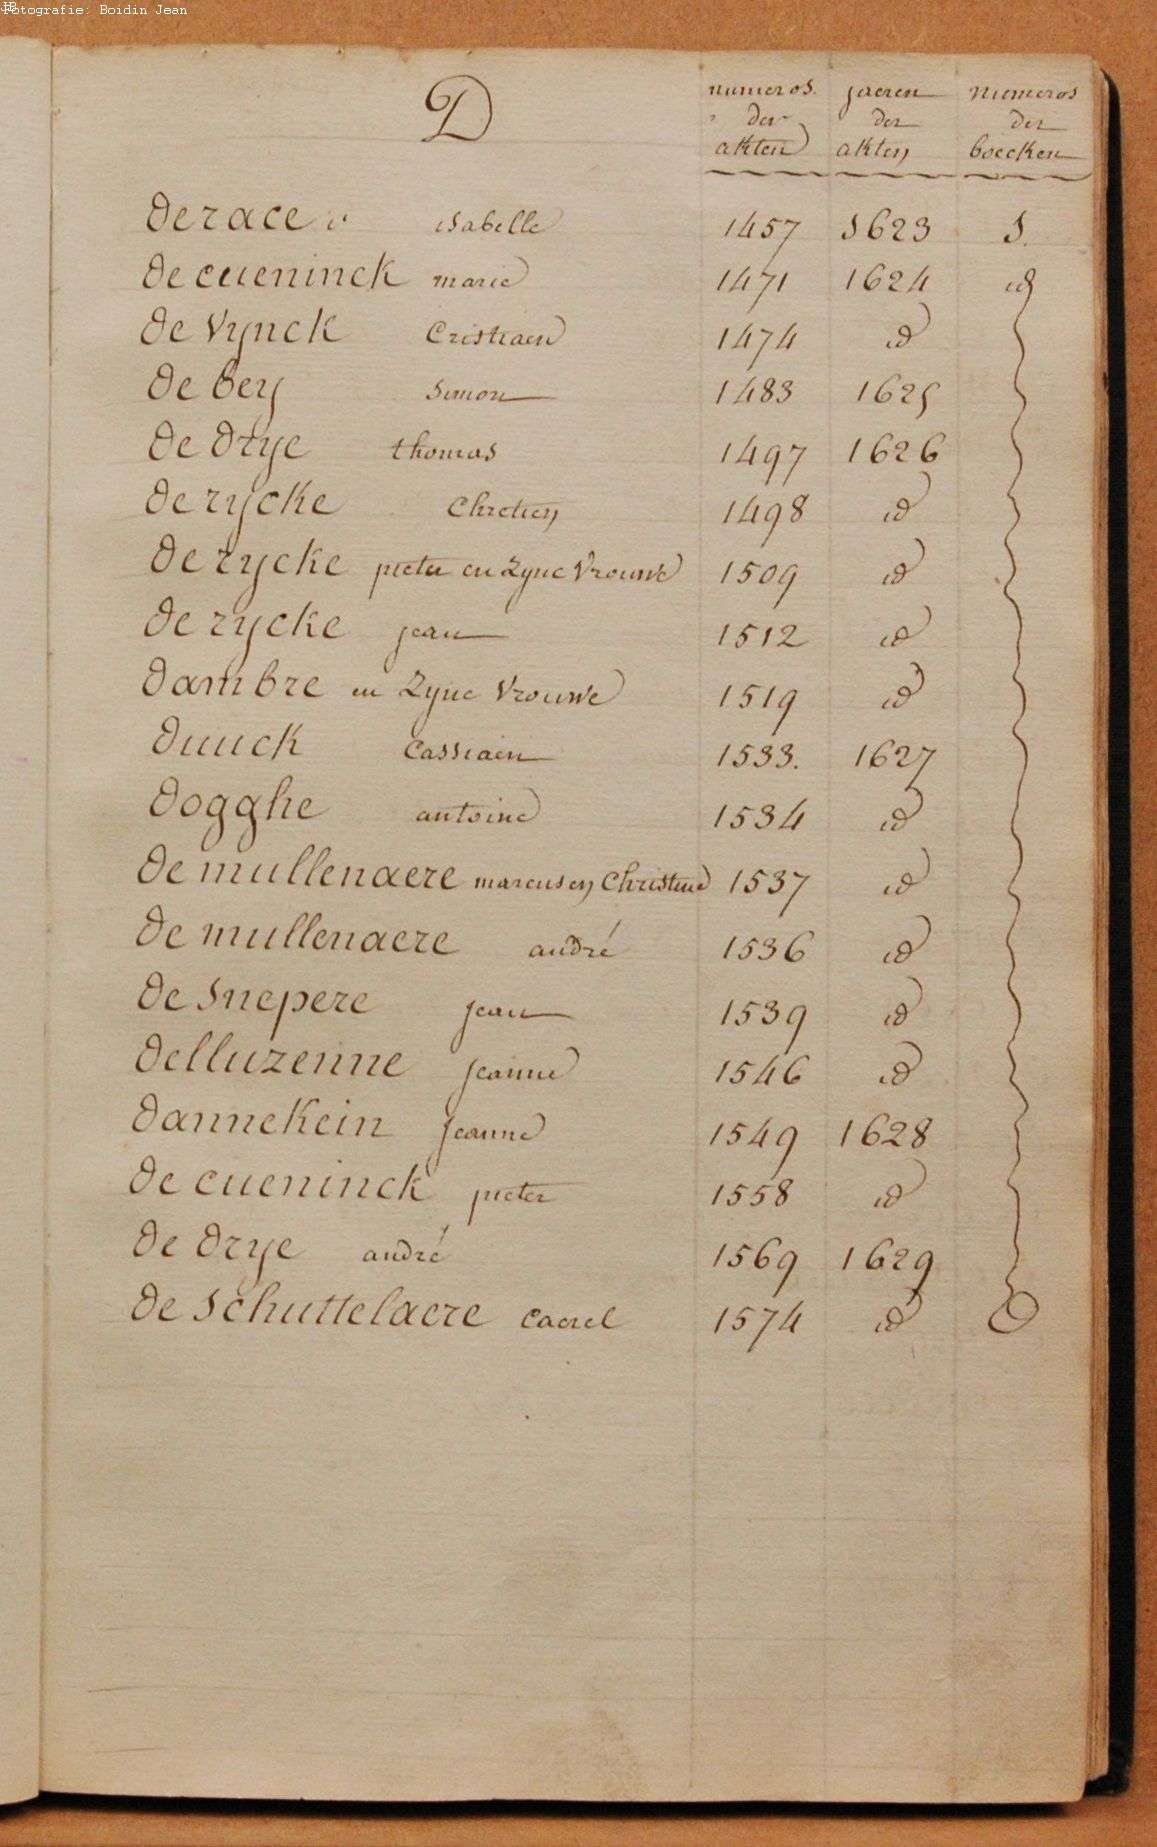 Fotografie: Boidin Jean
D
numeros der akten
jaeren der akten
numeros der boecken
De race isabelle 1457 1623 5.
De cueninck marie 1471 1624 id
De Vynck Cristiaen 1474 id
De bey simon 1483 1625
De Drye thomas 1497 1626
De rycke Chretien 1498 id
De rycke pieter en Zyne Vrouwe 1509 id
De rycke jean 1512 id
Dambre en Zyne Vrouwe 1519 id
Duuck Cassiaen 1533. 1627
Dogghe antoine 1534 id
De mullenaere marcus en Christine 1537 id
De mullenaere andré 1536 id
De Snepere jean 1539 id
Delluzenne jeanne 1546 id
Dannekein jeanne 1549 1628
De cueninck pieter 1558 id
De Drye andré 1569 1629
De Schuttelaere Caerel 1574 id